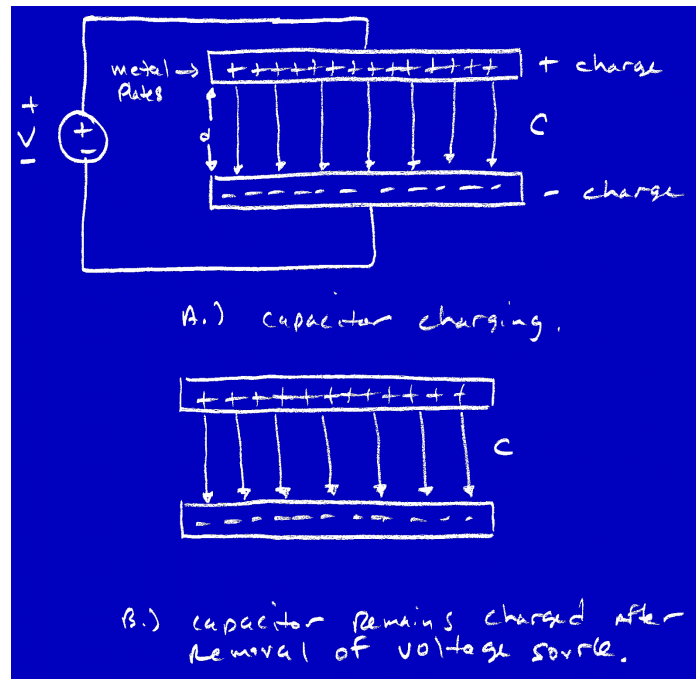 metal → + + + + + + + + + + + + + charge
Plates
+
V + d C
-
-
- - - - - - - - - - - - - charge
A.) capacitor charging.
+ + + + + + + + + + +
C
- - - - - - - - - - -
B.) capacitor Remains charged After
Removal of voltage source.